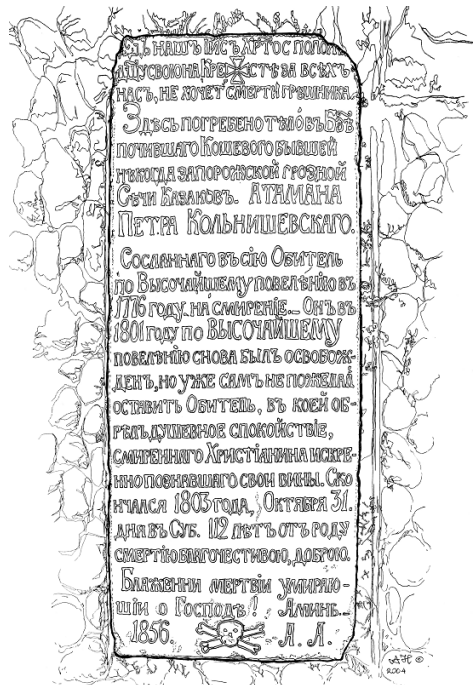 ДЬ НАШЪ ІИСЪ ХРТОС ПОЛО
ДШУ СВОЮ НА КРЕСТѢ ЗА ВСѢХЪ
НАСЪ, НЕ ХОЧЕТ СМЕРТИ ГРѢШНИКА.
ЗДѢСЬ ПОГРЕБЕНО ТѢЛО ВЪ БЗѢ
ПОЧИВШАГО КОШЕВОГО БЫВШЕЙ
НѢКОГДА ЗАПОРОЖСКОЙ ГРОЗНОЙ
СѢЧИ КАЗАКОВЪ. АТАМАНА
ПЕТРА КОЛЬНИШЕВСКАГО.
СОСЛАННАГО ВЪ СІЮ ОБИТЕЛЬ
ПО ВЫСОЧАЙШЕМУ ПОВЕЛѢНІЮ ВЪ
1776 ГОДУ. НА СМИРЕНІЕ. ОНЪ ВЪ
1801 ГОДУ ПО ВЫСОЧАЙШЕМУ
ПОВЕЛѢНІЮ СНОВА БЫЛЪ ОСВОБОЖ-
ДЕНЪ, НО УЖЕ САМЪ НЕ ПОЖЕЛАЛ
ОСТАВИТЬ ОБИТЕЛЬ, ВЪ КОЕЙ ОБ-
РѢЛЪ ДУШЕВНОЕ СПОКОЙСТВІЕ,
СМИРЕННАГО ХРИСТІАНИНА ИСКРЕ-
ННО ПОЗНАВШАГО СВОИ ВИНЫ. СКО
НЧАЛСЯ 1803 ГОДА, ОКТЯБРЯ 31.
ДНЯ ВЪ СУБ. 112 ЛѢТЪ ОТЪ РОДУ
СМЕРТІЮ БЛАГОЧЕСТИВОЮ, ДОБРОЮ.
БЛАЖЕННИ МЕРТВІИ УМИРАЮ-
ШІИ О ГОСПОДѢ! АМИНЬ.
1856. А. А.
АН ©
2004